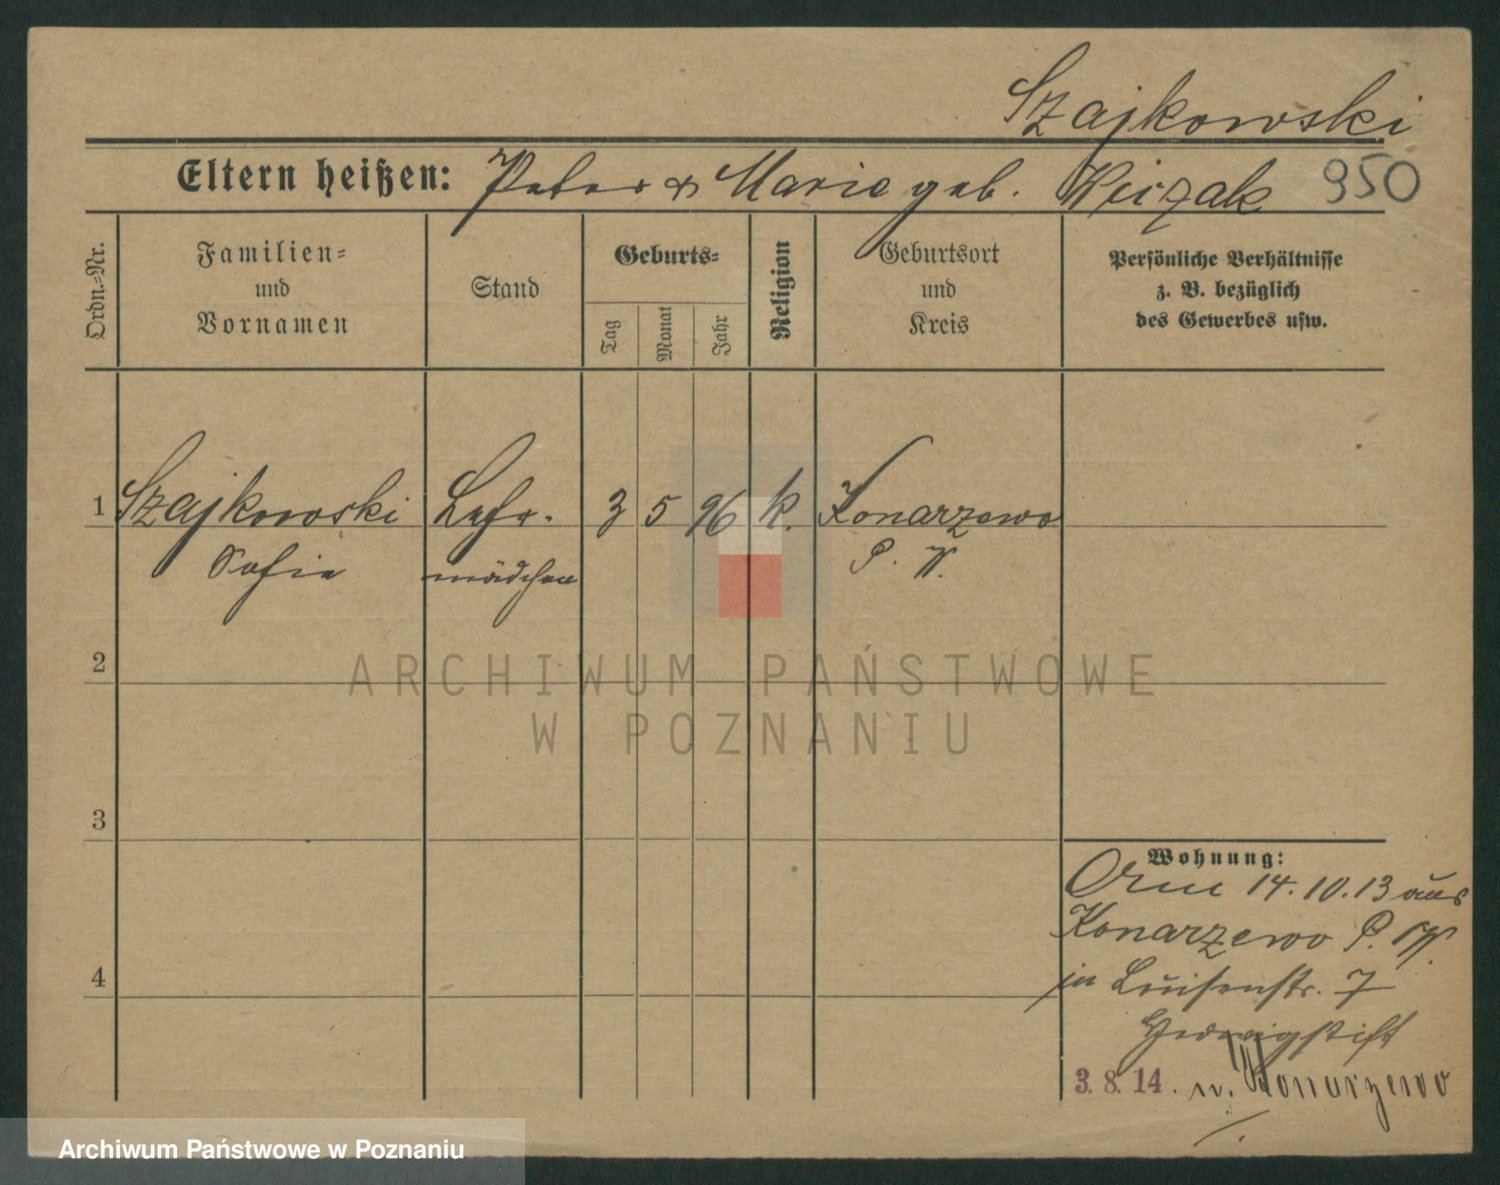 Szajkowski
Eltern heißen: Peter & Marie geb. 950
Ordn.-Nr.
Familien-
und
Vornamen
Stand
Geburts-
Tag
Monat
Jahr
Religion
Geburtsort
und
Kreis
Persönliche Verhältnisse
z. B. bezüglich
des Gewerbes usw.
1 Szajkowski Lehr- 3 5 96 k. Konarzewo
Sofie mädchen P. W.
2
ARCHIWUM PAŃSTWOWE
W POZNANIU
3
Wohnung:
14.10.13 aus
Konarzewo P. W.
4
in Luisenstr. 7
Hedwigstift
3. 8. 14. n. Konarzewo
Archiwum Państwowe w Poznaniu